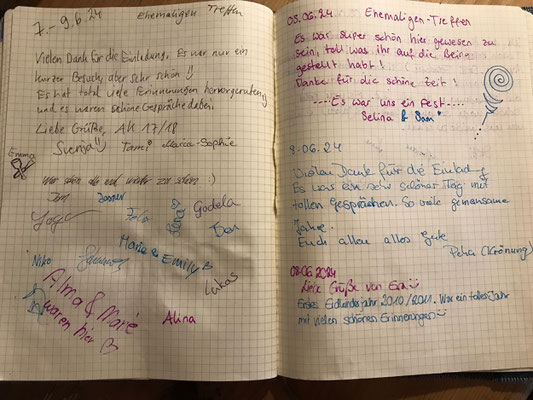 7.-9.6.24 Ehemaligen Treffen
Vielen Dank für die Einladung. Es war nur ein
kurzer Besuch, aber sehr schön!!
Es hat total viele Erinnerungen hervorgerufen
und es waren schöne Gespräche dabei.
Liebe Grüße, AK 17/18
Svenja!! Tami Maria-Sophie
Emma
War schön alle mal wieder zu sehen :)
Jim
Godela
Marie & Emily
Niko
Lukas
Alma & Marie
waren hier
Alina
05.06.24 Ehemaligen-Treffen
Es war super schön hier gewesen zu
sein, toll was ihr auf die Beine
gestellt habt!
Danke für die schöne Zeit!
----Es war uns ein Fest----
Selina & Sam
9-06.24
Vielen Dank für die Einladung
Es war ein sehr schöner Tag mit
tollen Gesprächen. So viele gemeinsame
Jahre.
Euch allen alles Gute
Petra (Krönung)
08.06.2024
Liebe Grüße von
Erstes Eidlandesjahr 2010/2011. War ein tolles Jahr
mit vielen schönen Erinnerungen